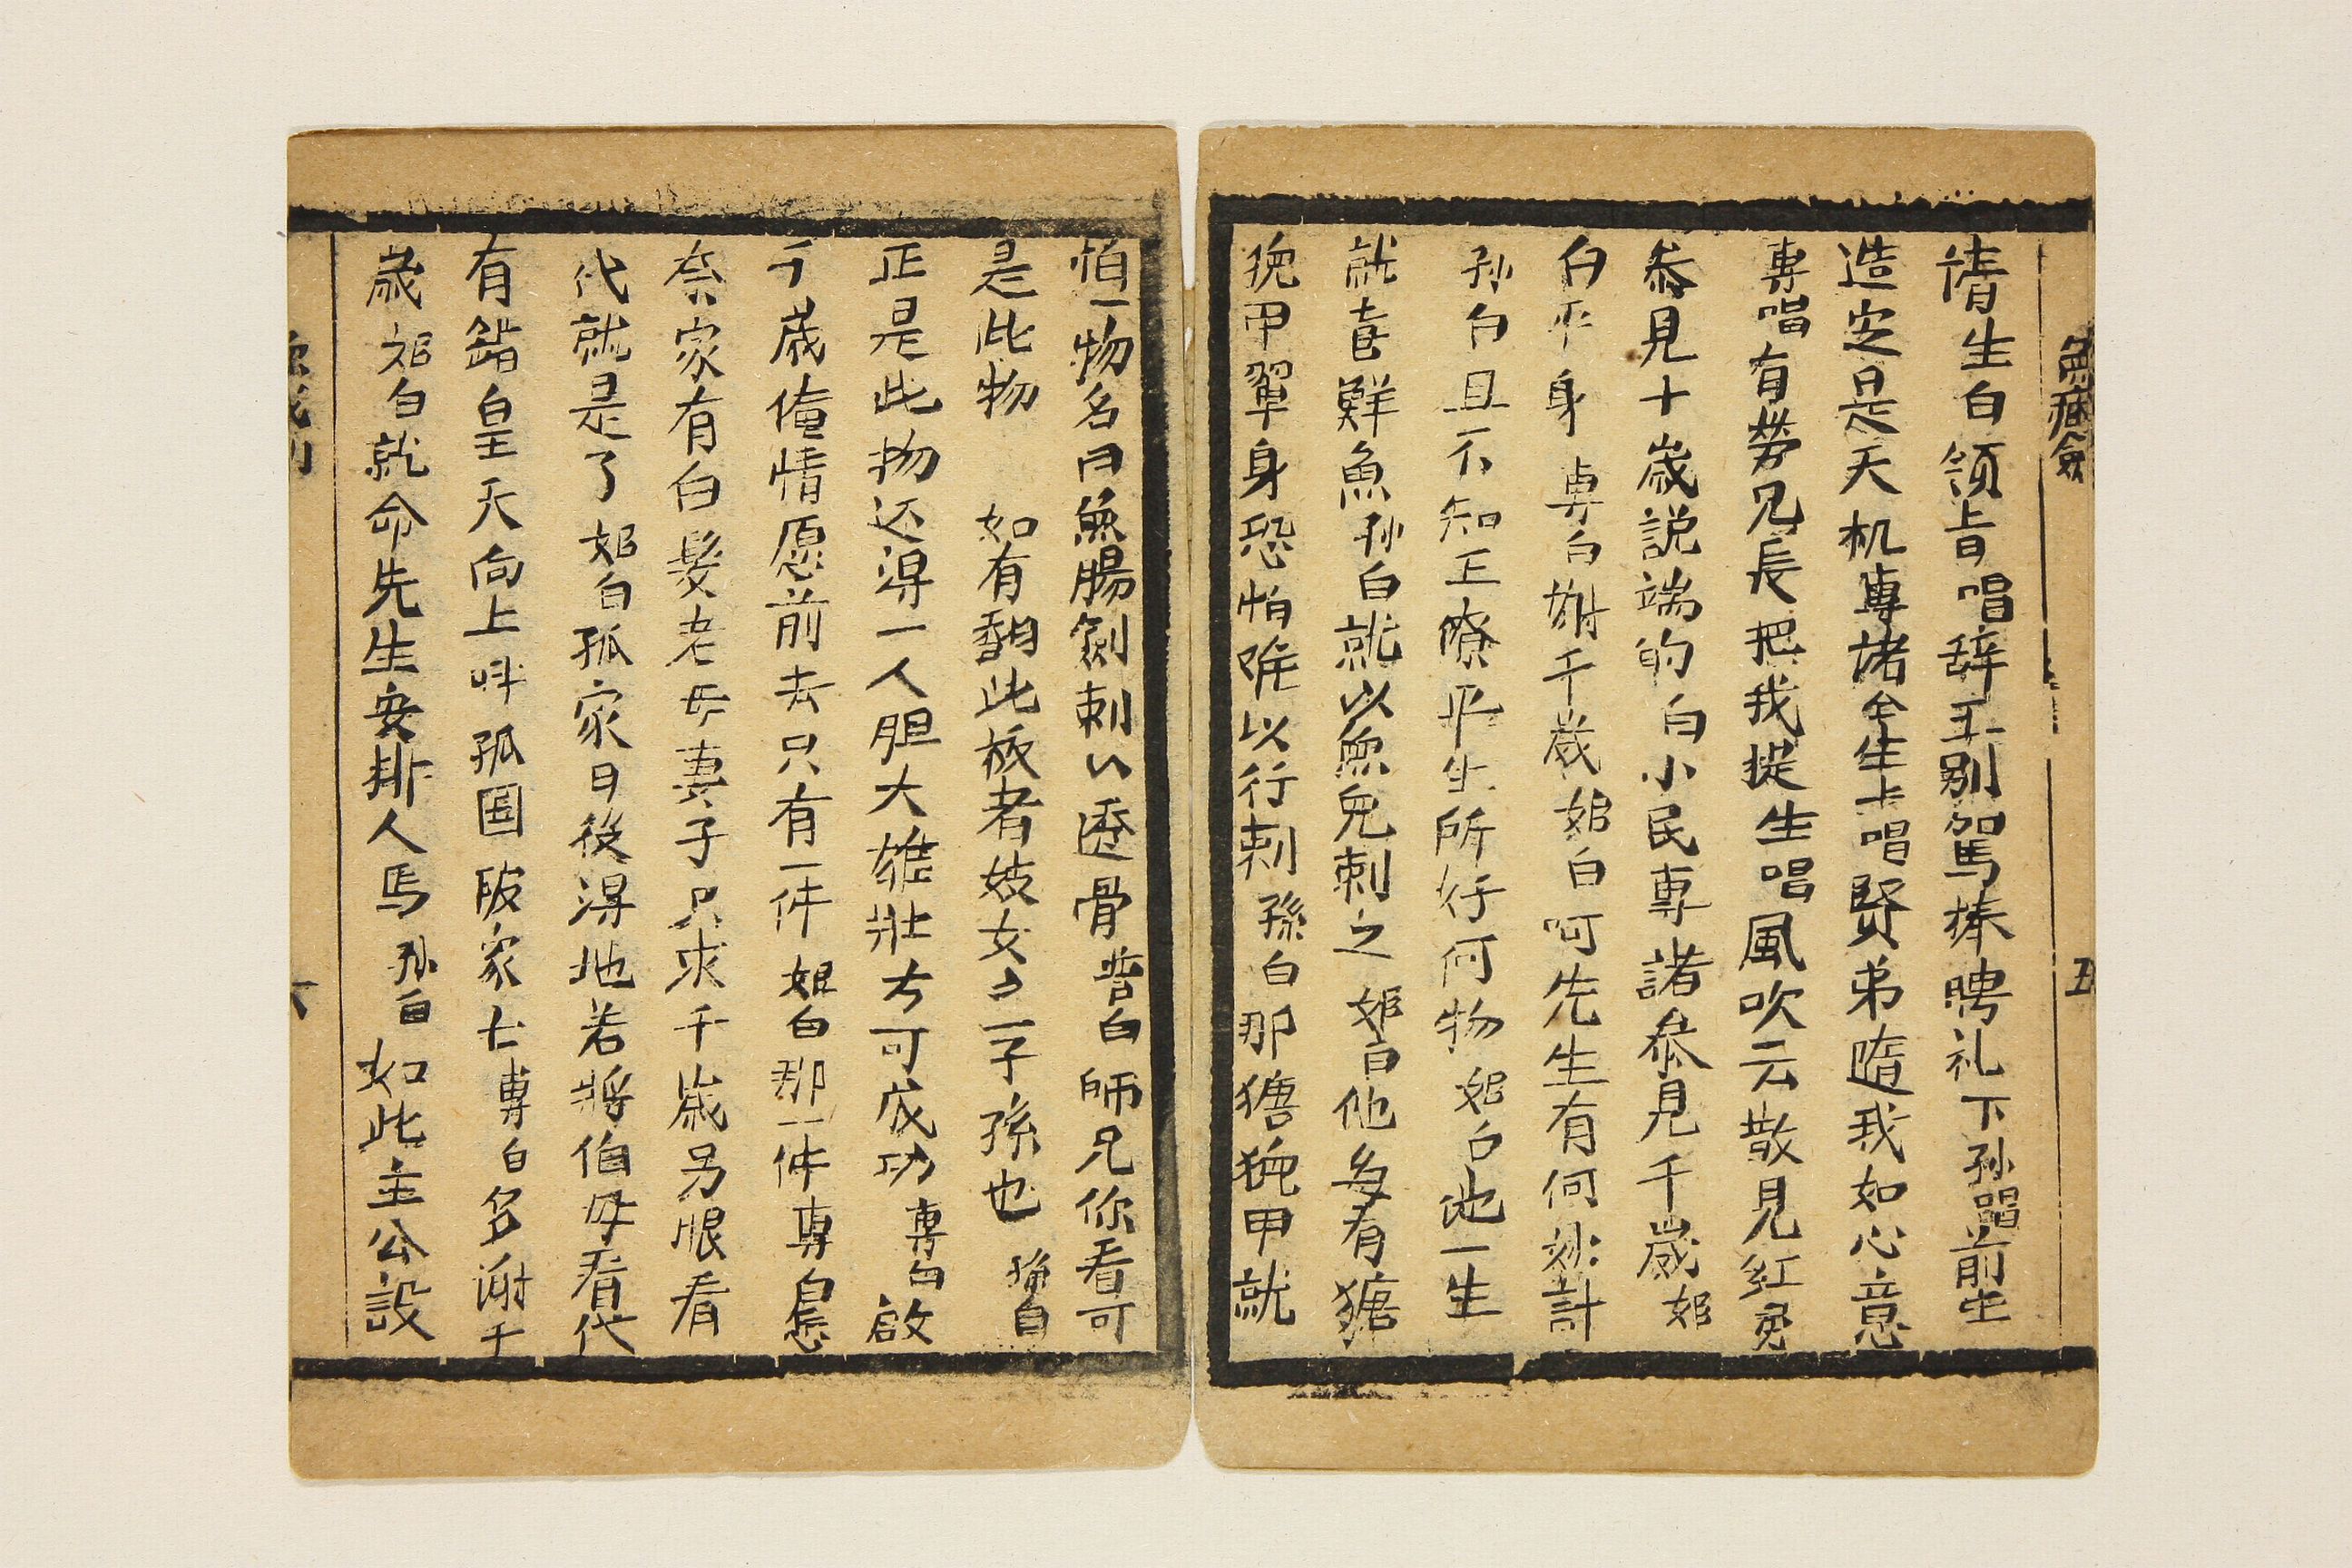 魚腸劍 五
情生白領旨唱辞王别駕捧聘礼下孙唱前生
造定是天机專諸仝生上唱賢弟隨我如心意
專唱有劳兄長把我提生唱風吹云散見紅
叅見十歳説端的白小民專諸叅見千歳姬
白平身專白謝千歳姬白呵先生有何妙計
孙白且不知王僚平生所好何物姬白他一生
就喜鮮魚孙白就以魚兒刺之姬白他多有猪
猊甲罩身恐怕难以行刺孫白那猪猊甲就
怕一物名曰魚腸劍刺以透骨姬白師兄你看可
是此物 如有翻此板者妓女之子孫也 孫白
正是此物还得一人胆大雄壮方可成功專白啟
千歳俺情愿前去只有一件姬白那一件專白
奈家有白髮老母妻子只求千歳另眼看
代就是了姬白孤家日後得地若将伯母看代
有錯皇天向上呌孤国破家亡專白多谢千
歳姬白就命先生安排人馬孙白如此主公設
六